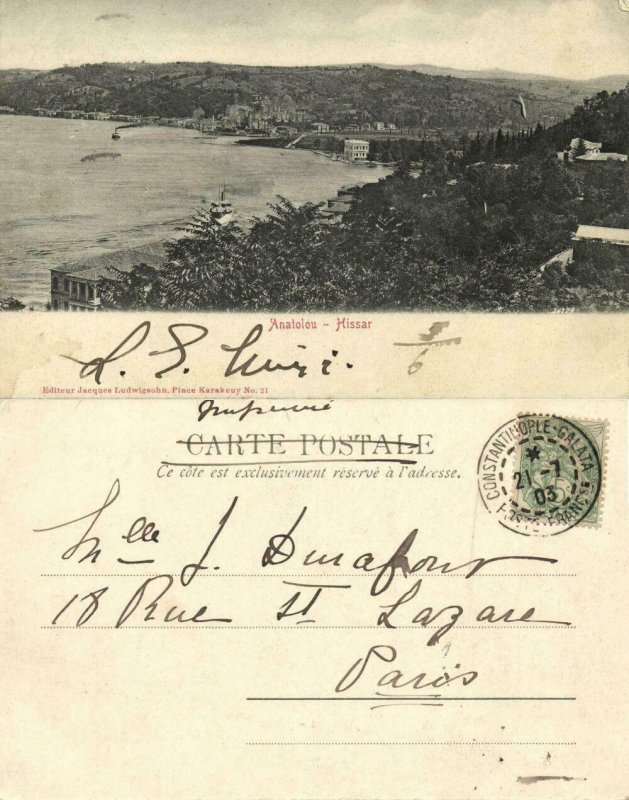 Anatolou - Hissar
6
Editeur Jacques Ludwigsohn, Place Karakeuy No. 21
Imprimé
CARTE POSTALE
Ce côte est exclusivement réservé à l'adresse.
CONSTANTINOPLE-GALATA
21-7
03
POSTE FRANÇSE
Mlle J. Durafour
18 Rue St Lazare
Paris